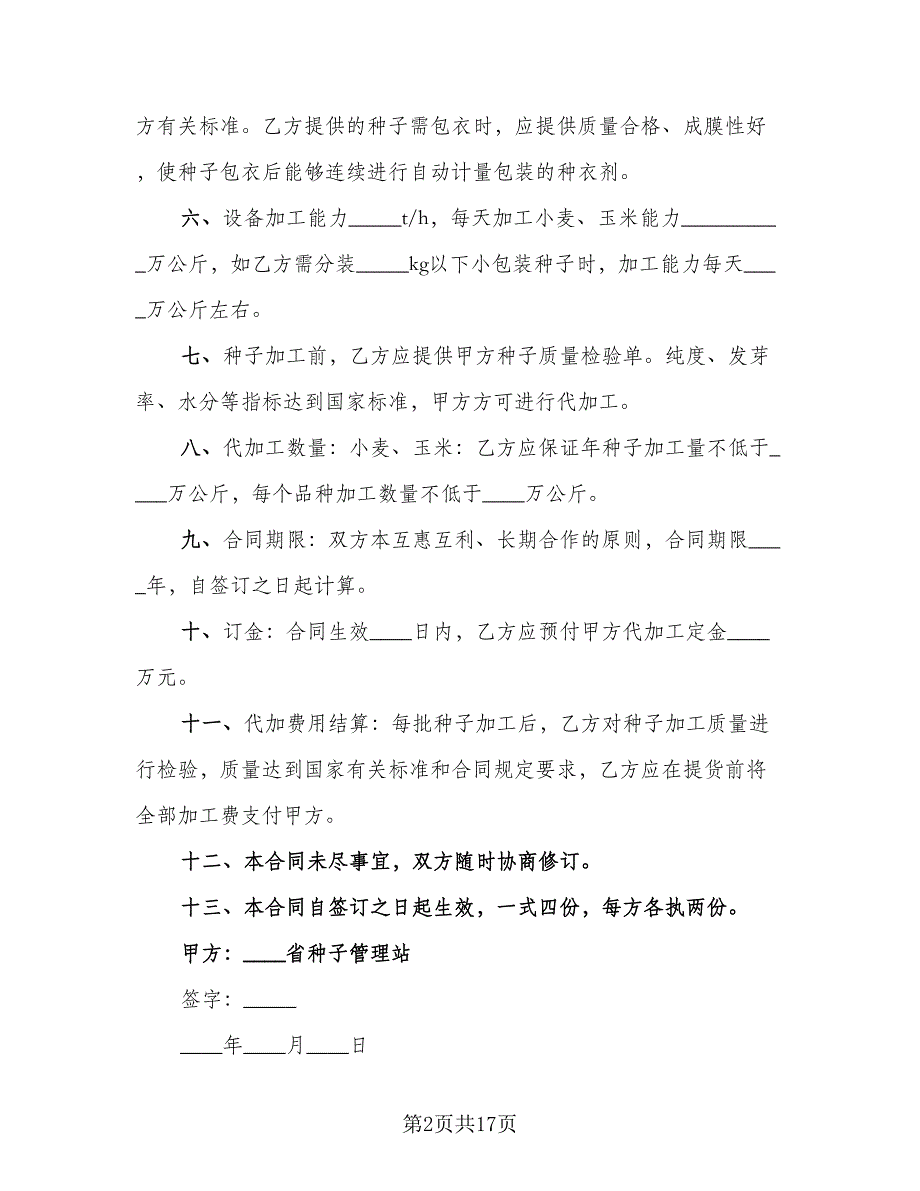 方有关标准。乙方提供的种子需包衣时，应提供质量合格、成膜性好
，使种子包衣后能够连续进行自动计量包装的种衣剂。
六、设备加工能力_____t/h，每天加工小麦、玉米能力_________
_万公斤，如乙方需分装_____kg以下小包装种子时，加工能力每天___
_万公斤左右。
七、种子加工前，乙方应提供甲方种子质量检验单。纯度、发芽
率、水分等指标达到国家标准，甲方方可进行代加工。
八、代加工数量：小麦、玉米：乙方应保证年种子加工量不低于_
___万公斤，每个品种加工数量不低于____万公斤。
九、合同期限：双方本互惠互利、长期合作的原则，合同期限___
_年，自签订之日起计算。
十、订金：合同生效____日内，乙方应预付甲方代加工定金____
万元。
十一、代加费用结算：每批种子加工后，乙方对种子加工质量进
行检验，质量达到国家有关标准和合同规定要求，乙方应在提货前将
全部加工费支付甲方。
十二、本合同未尽事宜，双方随时协商修订。
十三、本合同自签订之日起生效，一式四份，每方各执两份。
甲方：____省种子管理站
签字：_____
____年____月____日
第2页共17页